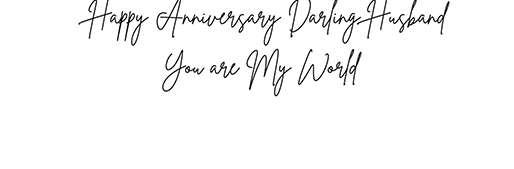 Happy Anniversary Darling Husband
You are My World